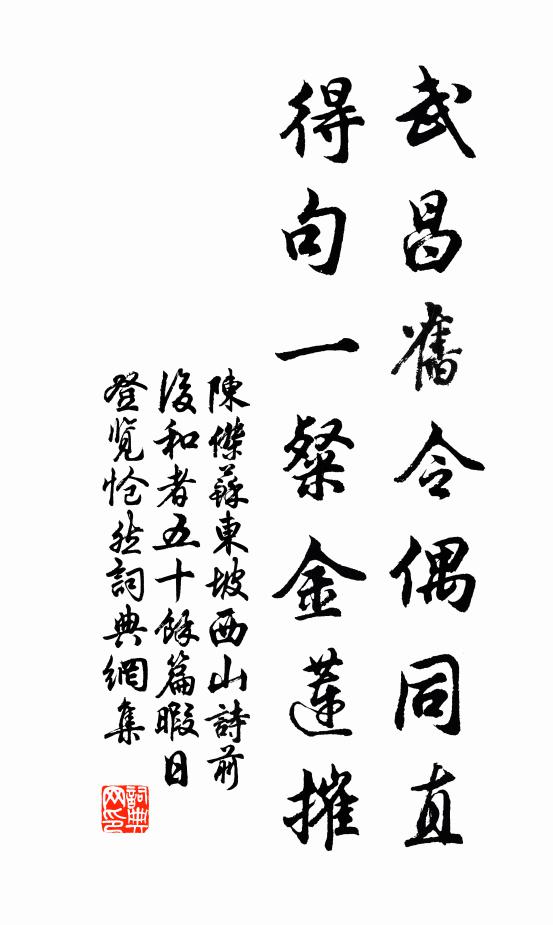 武昌舊令偶同直
得句一粲金蓮摧
陳傑蘇東坡西山詩前
後和者五十餘篇暇日
登覽愴然詞典網集
詞典
网印